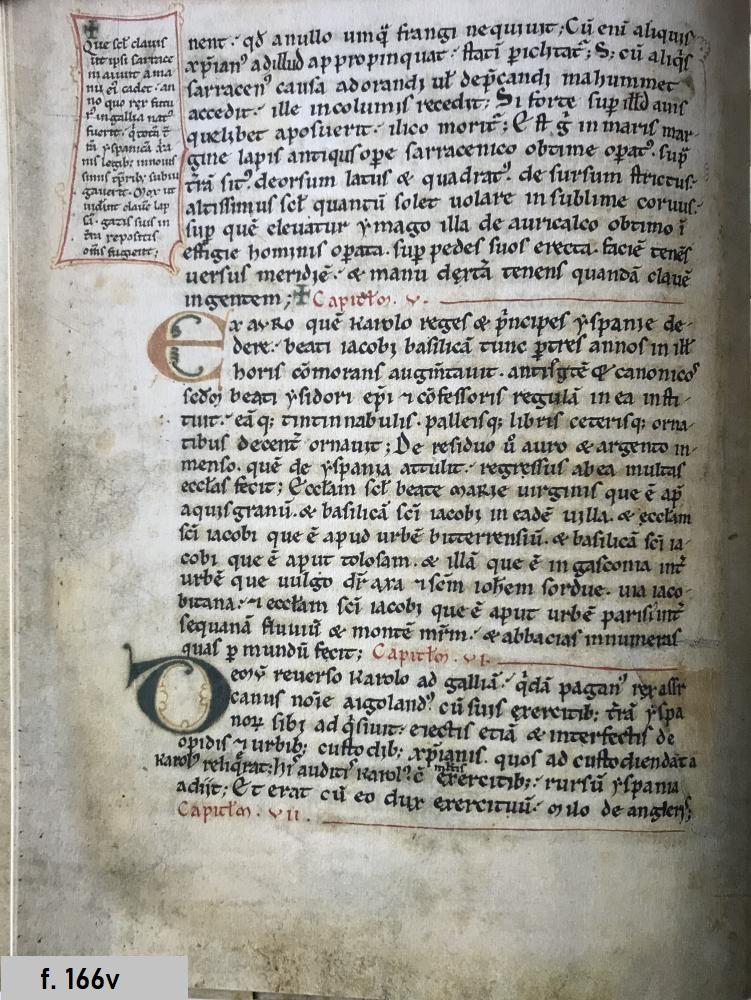 Que scł clauis
ut ipsi sarrace
ni aiunt a ma
nu ei᷒ cadet · an
no quo rex futu
r᷒ in gallia nat᷒
fuerit · q̇ totā
yspanicā
nis legib; innouis
simis tp̄rib; subiu
gauerit · Mox ut
uiderint clauē lap
sā · gazis suis in
t̄ra repositis
om̄s fugient;
nent · qđ a nullo umq̄ frangi nequiuit; Cū enī aliquis
xp̄ian᷒ ad illud appropinquat · statī periclitat̄; S; cū aliq̇s
sarracen᷒ causa adorandi uł dep̄candi mahummet
accedit · ille incolumis recedit; Si forte sup̄ illđ auis
quelibet aposuerit · ilico morit̄; Est g̊ in maris mar
gine lapis antiquus ope sarracenico obtime opat᷒ · sup̄
t̄rā sit᷒ · deorsum latus & quadrat᷒ · desursum strictus ·
altissimus scł quantū solet uolare in sublime coruus ·
sup̄ quē eleuatur ymago illa de auricalco obtimo ī
effigie hominis opata · sup̄ pedes suos erecta · faciē tenēs
uersus meridiē · & manu dextā tenens quandā clauē
ingentem; ✝ Capitłm · v ·
Ex auro quē karolo reges & p̄ncipes yspanie de
dere · beati iacobi basilicā tunc p̄ tres annos in ill᷒
horis cōmorans augm̄tauit · antistitē & canonicos
sedm̄ beati ysidori ep̄i ⁊ cōfessoris regulā in ea insti
tuit · eāq; tintinnabulis · palleisq; libris ceterisq; orna
tibus decent̄ ornauit; De residuo ů auro & argento in
menso · quē de yspania attulit · regressus ab ea multas
eccłas fecit; Eccłam scł beate marie uirginis que ē ap̄
aquisgranū · & basilicā sc̄i iacobi in eadē uilla · & eccłam
sc̄i iacobi que ē apud urbē bitterrensiū · & basilicā sc̄i ia
cobi que ē aput tolosam · & illā que ē in gasconia int̄
urbē que uulgo dr̄ axa ⁊ sc̄m ioħem sordue · uia iaco
bitana · ⁊ eccłam sc̄i iacobi que ē aput urbē parisi᷒ int̄
sequanā fluuiū & montē mr̄m · & abbacias innumeras
quas p̱ mundū fecit; Capitłm · vı ·
Deinde reuerso karolo ad galliā · q̇dā pagan᷒ rex affr
icanus noīe aigoland᷒ · cū suis exercitib; t̄rā yspa
noꝝ sibi adq̇siuit · eiectis etiā & interfectis de
opidis ⁊ urbib; custodib; xp̄ianis · quos ad custodiendā t̄a
karol᷒ reliq̇rat · hi᷒ auditis karol᷒ cū multis exercitib; · rursū yspaniā
adijt; Et erat cū eo dux exercituū · milo de angleris;
Capitłm · vıı ·
f. 166v